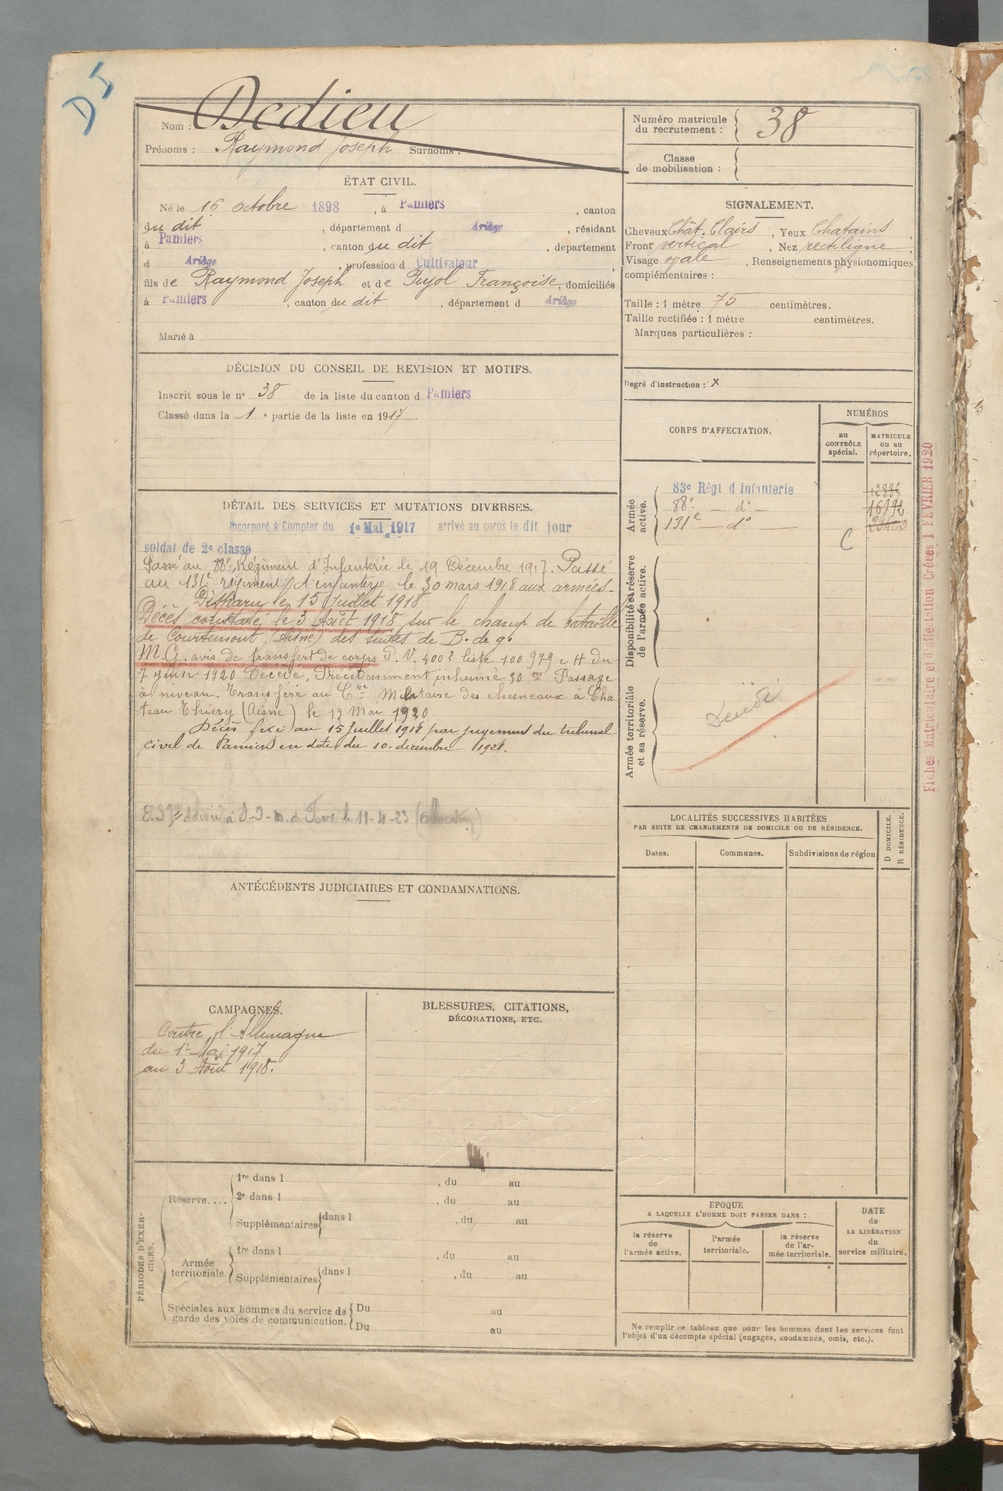 DI
Nom : Dedieu
Prénoms : Raymond Joseph Surnoms :
Numéro matricule du recrutement : 38
Classe de mobilisation :
ÉTAT CIVIL.
Né le 16 octobre 1898, à Pamiers, canton
du dit, département d Ariège, résidant
à Pamiers, canton du dit, département
d Ariège, profession d Cultivateur
fils de Raymond Joseph et de Pujol Françoise, domiciliés
à Pamiers, canton du dit, département d Ariège
Marié à
SIGNALEMENT.
Cheveux Chât. Clairs, Yeux Chatains,
Front vertical, Nez rectiligne
Visage ovale, Renseignements physionomiques
complémentaires :
Taille : 1 mètre 75 centimètres.
Taille rectifiée : 1 mètre centimètres.
Marques particulières :
Degré d'instruction : x
DÉCISION DU CONSEIL DE REVISION ET MOTIFS.
Inscrit sous le n° 38 de la liste du canton d Pamiers
Classé dans la 1e partie de la liste en 1917
DÉTAIL DES SERVICES ET MUTATIONS DIVERSES.
Incorporé à Compter du 1e Mai 1917 arrivé au corps le dit jour
soldat de 2e classe
Passé au 88e Régiment d'Infanterie le 19 Décembre 1917. Passé
au 131e régiment d'infanterie le 30 mars 1918 aux armées
Disparu le 15 Juillet 1918
Décès constaté le 3 Août 1918 sur le champ de bataille
de Courtemont (Aisne) des suites de B. de g.
M.G. avis de transfert de corps P.V. 4002 liste 100.979 c H du
7 juin 1920 Décédé, Précédemment inhumé 30 m Passage
à niveau. Transféré au Cre Militaire des chesneaux à Cha
teau Thiery (Aisne) le 19 Mai 1920
Décès fixé au 15 Juillet 1918 par jugement du tribunal
civil de Pamiers en date du 10 décembre
à le 11-4-23
CORPS D'AFFECTATION.
NUMÉROS
au CONTRÔLE spécial.
MATRICULE ou au répertoire.
Armée active.
83e Régt d Infanterie
88e — do —
131e — do
C
Disponibilité et réserve de l'armée active.
Armée territoriale et sa réserve.
Fiches Matriculaire et Collection Créées 1 FEVRIER 1920
LOCALITÉS SUCCESSIVES HABITÉES
PAR SUITE DE CHANGEMENTS DE DOMICILE OU DE RÉSIDENCE.
Dates.
Communes.
Subdivisions de région
D DOMICILE.
R RÉSIDENCE.
ANTÉCÉDENTS JUDICIAIRES ET CONDAMNATIONS.
CAMPAGNES.
Contre l'Allemagne
du 1er Mai 1917
au 3 Août 1918.
BLESSURES, CITATIONS,
DÉCORATIONS, ETC.
PÉRIODES D'EXERCICES.
Réserve....
1re dans l , du au
2e dans l , du au
Supplémentaires dans l , du au
Armée territoriale.
1re dans l , du au
Supplémentaires dans l , du au
Spéciales aux hommes du service de
garde des voies de communication.
Du au
Du au
EPOQUE
A LAQUELLE L'HOMME DOIT PASSER DANS :
la réserve de l'armée active.
l'armée territoriale.
la réserve de l'armée territoriale.
DATE
de
LA LIBÉRATION
du
service militaire.
Ne remplir ce tableau que pour les hommes dont les services font
l'objet d'un décompte spécial (engagés, condamnés, omis, etc.).